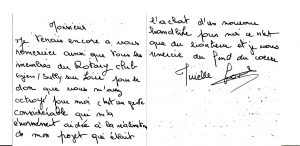 Monsieur
Je tenais encore a vous
remercier ainsi que tous les
membres du Rotary club
Gien / Sully sur Loire pour le
don que vous m'avez
octroyé pour moi c'est un geste
considérable qui m'a
énormément aidée à la réalisation
de mon projet qui était
l'achat d'un nouveau
handbike pour moi ce n'est
que du bonheur et je vous
remercie du fond du coeur